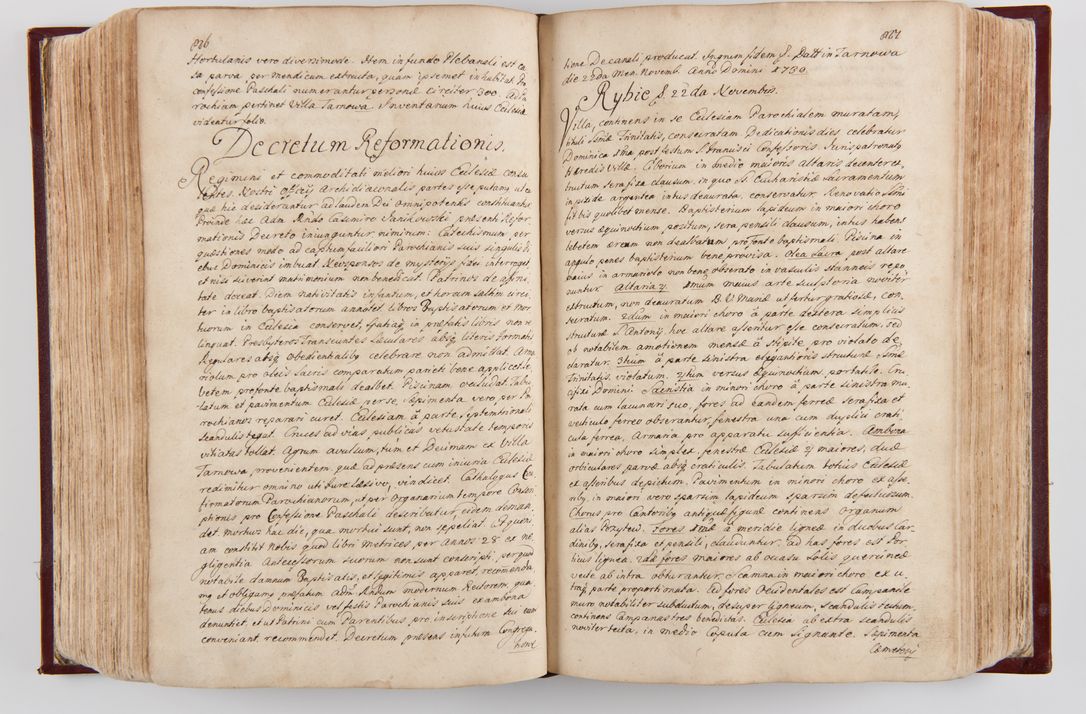 826
Hortulanis vero diversimode. Item in fundo Plebanali est ca,
sa parva per mendicum extructa, quam ipsemet inhabitat. In
confessione Paschali numerantur personæ circiter 300. Ad Pa,
rochiam pertinet Villa Tarnowa. Inventarium huius Ecclesiæ
videntur folio.
Decretum Reformationis.
Regimini et commoditati meliori huius Ecclesiæ consu
lentes. Nostri Officÿ Archidiaconalis partes esse putamg ut ea
quæ hic desiderantur ad laudem Dei omnipotentis constituantur
Proinde hac Adm Rndo Casimiro Janikowski præsenti Refor
mationis Decreto iniunguntur nimirum: Catechismum, per
quæstiones modo ad captum faciliori Parochianis suis singulis Di
ebus Dominicis imbuat. Neosponsos de mysterÿs fidei interroget,
et nisi sciverint matrimonium non benedicat. Patrinos de affini
tate doceat. Diem nativitatis infantum, et horam saltim circi,
ter in libro baptisatorum annotet. libros Baptisatorum et Mor
tuorum in Ecclesia conservet, spatiaq in præfatis libris non re
linquat. Presbyteros Transeuntes sæculares absq literis formatis
Regulares absq obedientialibg celebrare non admittat. Arm
riolum pro oleis sacris comparatum parieti bene applicet. le,
betem, pro fonte baptismali dealbet. Piscinam, occludat. Tabu
latum et pavimentum Ecclesiæ per se, sæpimenta vero per Pa
rochianos reparari curet. Ecclesiam à parte septentrionali
scandulis tegat. Cruces ad vias publicas vetustate temporis
vitiatas tollat. Agrum avulsum, tum et Decimam ex Villa
Tarnowa, provenientem, quæ ad præsens cum iniuria Ecclesiæ
redimitur omnino uti iure læsivo, vindicet. Cathalogus Co
firmatorum Parochianorum, ut per Organarium tempore Conscri
ptionis pro Confessione Paschali describatur, eidem deman,
det. mortuos hac die, qua mortui sunt, non sepeliat. Et quoni
am constitit Nobis quod libri metrices per annos 28 ex ne,
gligentia Antecessorum suorum non sunt conscripti, per quod
notabile damnum Baptisatis, et legitimis apparet, recomenda
mg et obligamg præfatum Adm Rndum modernum Rectorem, qua,
tenus diebus Dominicis vel festis Parochianis suis ex ambona
denuntiet, et ut Patrini cum Parentibus pro inscriptione sui cum
conveniant, recommendet. Decretum præsens infutura Congrega,
tione
821
tione Decanali, producet. In quorum fidem &. Datt in Tarnowa
die 22da Men. Novemb. Anno Domini 1739
Rybie &. 22 da Novembris.
Villa, continens in se Ecclesiam Parochialem muratam,
tituli Ssmæ Trinitatis, consecratam Dedicationis dies celebratur
Dominica 1ma post festum S. Francisci Confessoris. Juris patronatg
Hæredis Villæ. Ciborium in medio maioris altaris decenter ex,
tructum sera fixa clausum, in quo SS. Eucharistiæ Sacramentum
in pixide argentea intus deaurata, conservatur. Renovatio Ssmi
sit bis quolibet mense. Baptisterium lapideum in maiori choro
versus æquinoctium positum, sera pensili clausum, intus habens
lebetem æreum non dealbatum pro fonte baptismali. Piscina in
angulo penes baptisterium bene provisa. Olea Sacra post altare
maius in armariolo non bene obserato in vasculis stanneis repo
nuntur. Altaria 4. 1mum maius arte sculptoria noviter
extructum, non deauratum B. V. Mariæ ut fertur gratiosæ, con,
secratum. 2dum in maiori choro à parte dextera simplicis
structuræ S. Antonÿ, hoc altare asseritur esse consecratum, sed
ob notabilem amotionem mensæ à stipite pro violato de
claratur. 3tium à parte sinistra elegantioris structuræ Ssmæ
Trinitatis, violatum. 4tum versus æquinoctium, portatile, Cru
cifixi Domini. Sacristia in minori choro à parte sinistra mu,
rata cum lavacuari suo, fores ad eandem ferreæ sera fixa et
vecticulo ferreo obserantur, fenestra una cum duplici crati
cula ferrea. Armaria pro apparatu sufficientia. Ambona
in maiori choro simplex, fenestræ Ecclesiæ 4 maiores, duæ
orbiculares parvæ absq craticulis. Tabulatum totius Ecclesiæ
ex asseribus depictum. Pavimentum in minori choro ex asse,
ribg, in maiori vero sparsim lapideum sparsim defectuosum.
Chorus pro Cantoribg antiquæ figuræ continens Organum
alias Pozytew. Fores 1mæ à meridie ligneæ in duobus Car
dinibg, sera fixa et pensili, clauduntur, ad has fores est Por
ticus lignea. 2dæ fores maiores ab occasu Solis querceneæ
vecte ab intra obturantur. Scamna in maiori choro ex u,
traq parte proportionata. Ad fores Occidentales est Campanile
murr notabiliter subductum, desuper ligneum, scandulis tectum,
continens Campanas tres benedictas. Ecclesia ab extra scandulis
noviter tecta, in medio Copula cum Signante. Sæpimenta
Cæmeterÿ